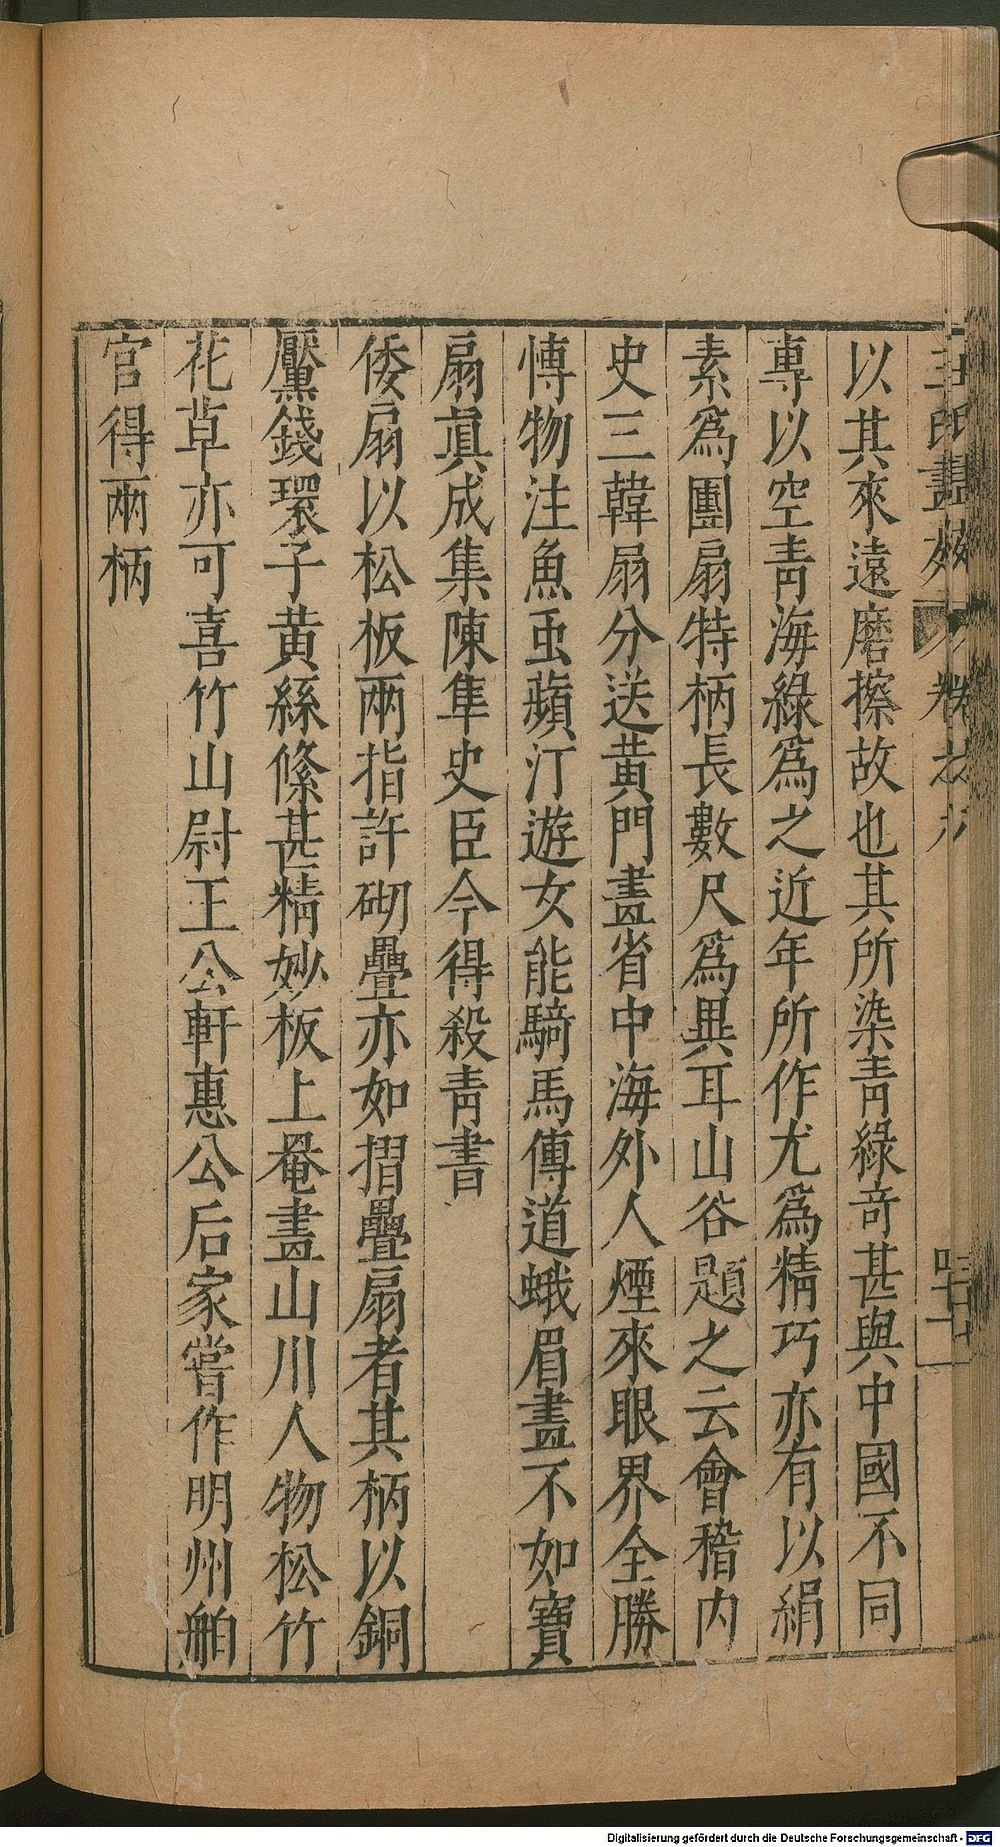 王氏畫苑 卷之六 四十一
以其來遠磨擦故也其所染青綠奇甚與中國不同
專以空青海綠為之近年所作尤為精巧亦有以絹
素為團扇特柄長數尺為異耳山谷題之云會稽內
史三韓扇分送黃門畫省中海外人煙來眼界全勝
博物注魚虫蘋汀遊女能騎馬傳道蛾眉畫不如寶
扇真成集陳隼史臣今得殺青書
倭扇以松板兩指許砌疊亦如摺疊扇者其柄以銅
黶錢環子黃絲絛甚精妙板上罨畫山川人物松竹
花草亦可喜竹山尉王公軒惠公后家嘗作明州舶
官得兩柄
Digitalisierung gefördert durch die Deutsche Forschungsgemeinschaft - DFG